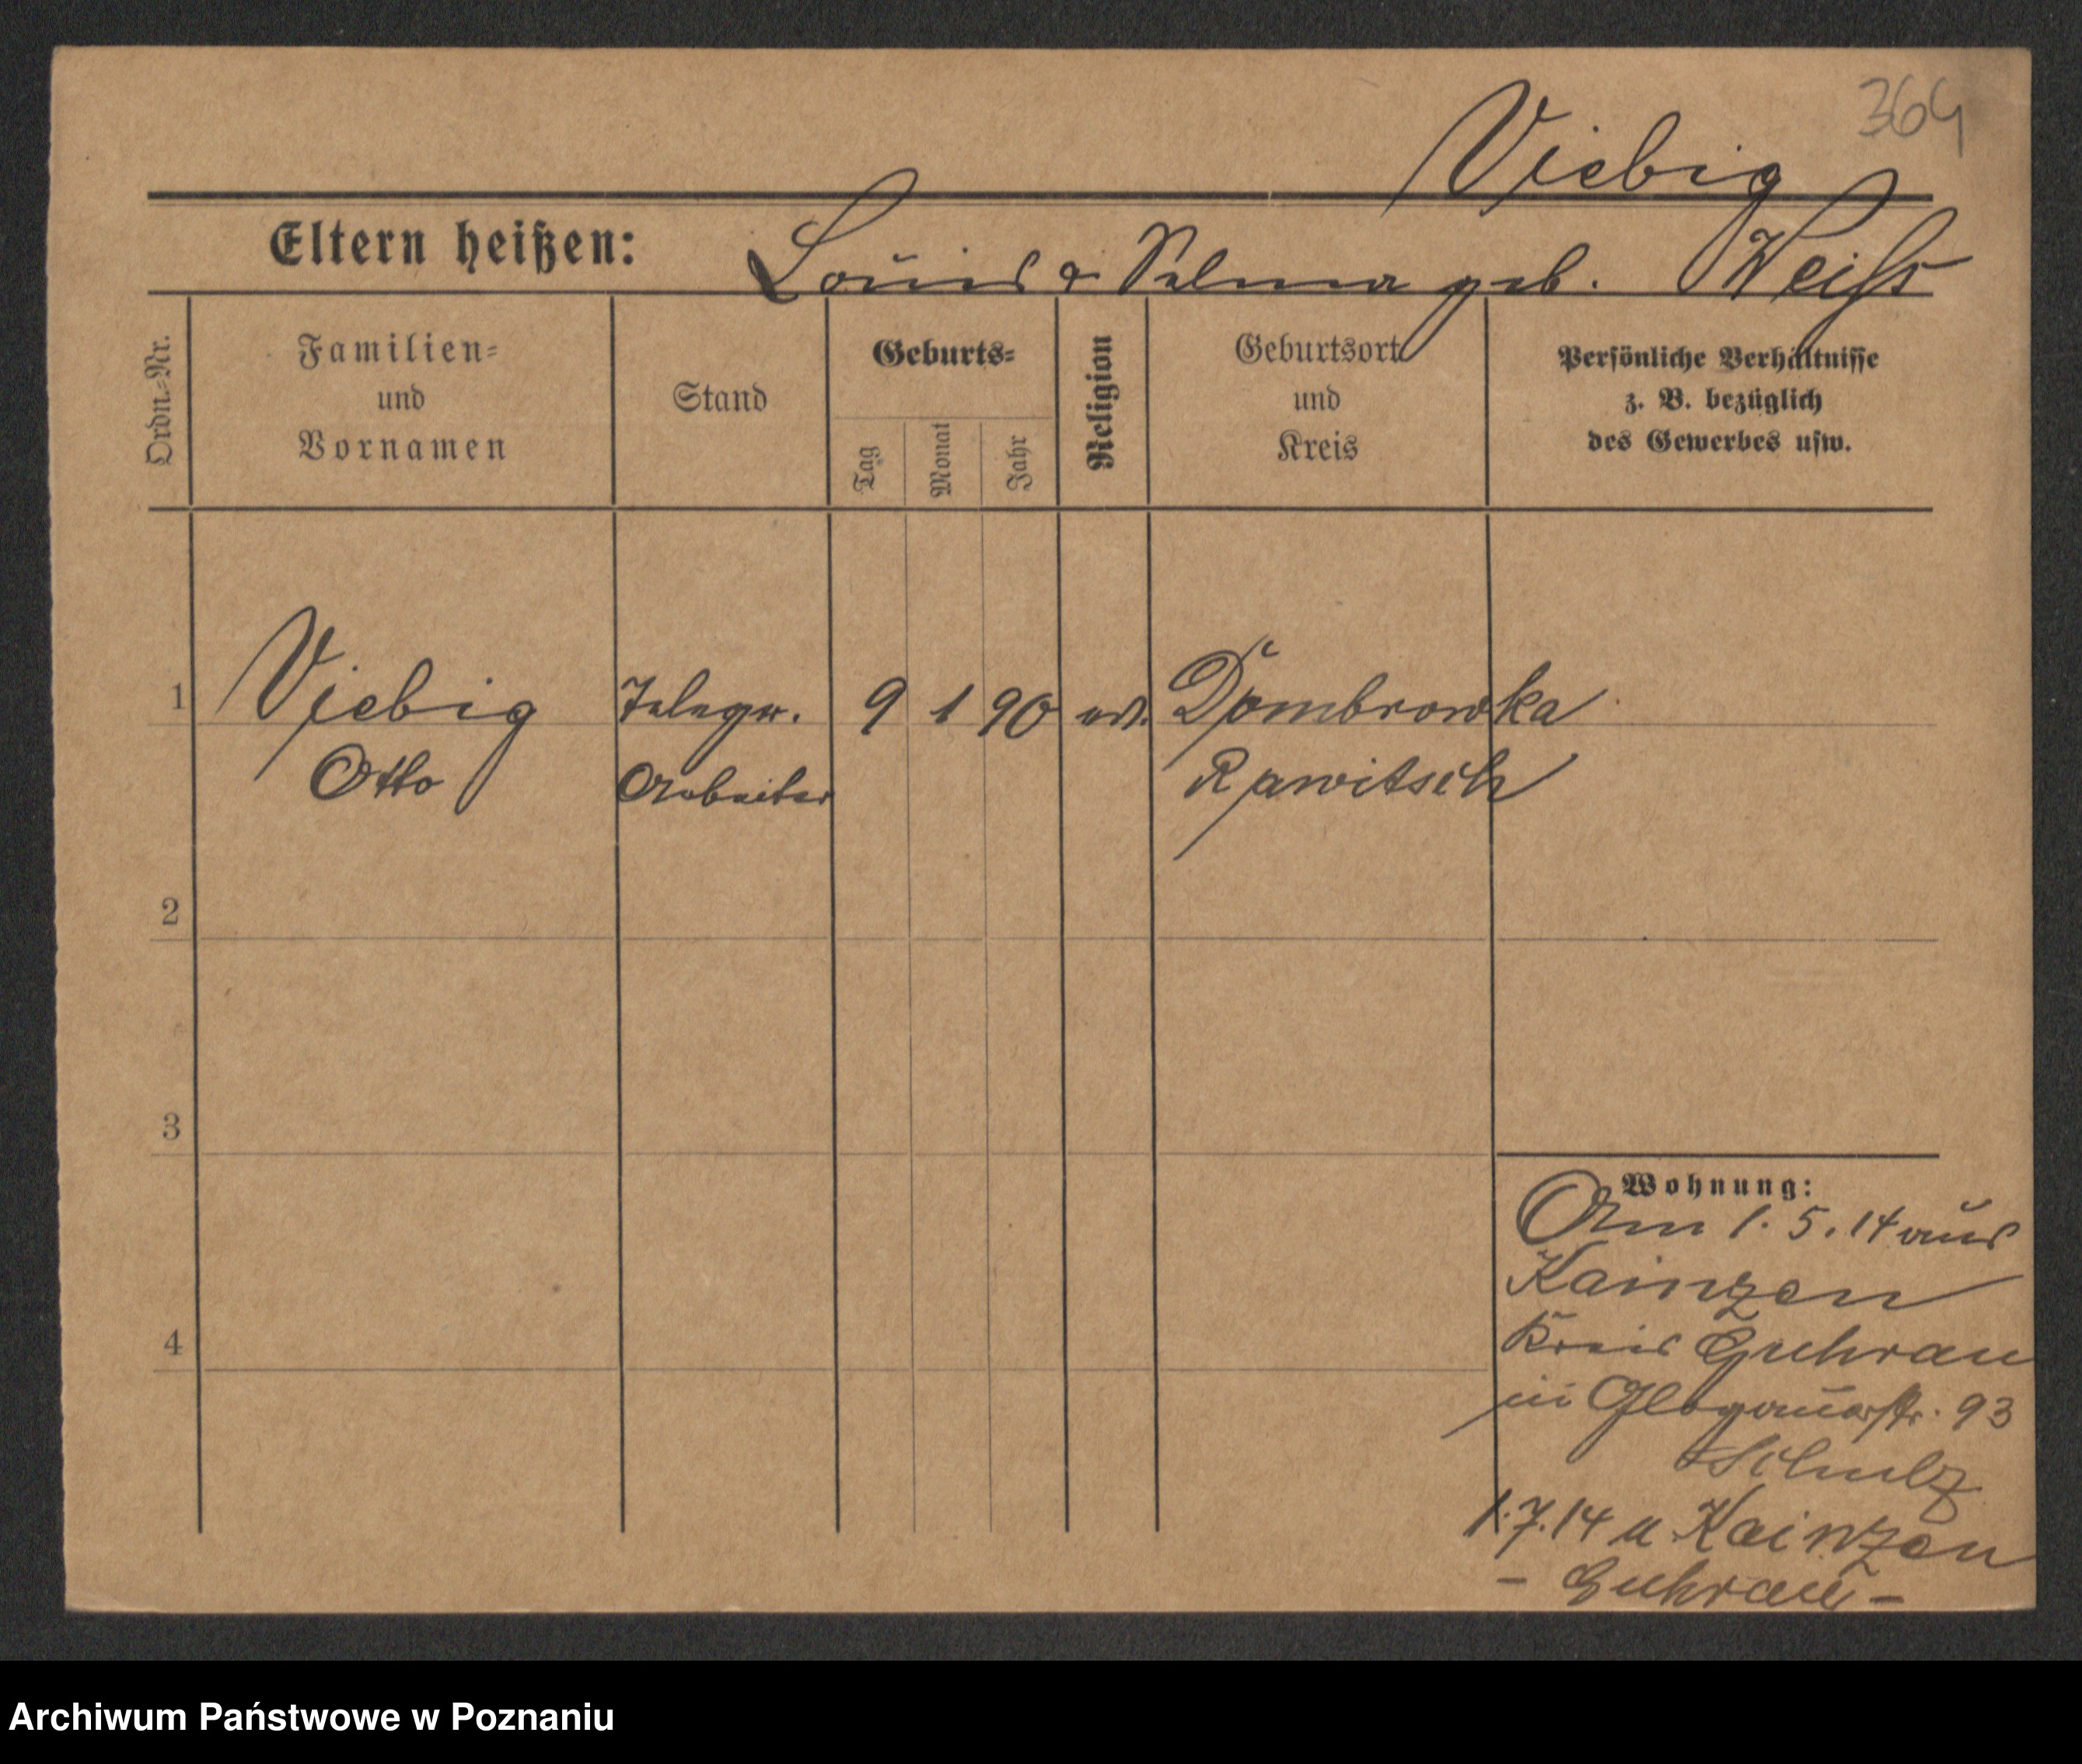 364
Viebig
Eltern heißen: Louis & Selma geb. Weiss
Ordn.-Nr.
Familien-
und
Vornamen
Stand
Geburts-
Tag
Monat
Jahr
Religion
Geburtsort
und
Kreis
Persönliche Verhältnisse
z. B. bezüglich
des Gewerbes usw.
1 Viebig Telegr. 9 1 90 ev. Dombrowka
Otto Arbeiter Rawitsch
2
3
4
Wohnung:
Am 1.5.14 aus
Kainzen
Kreis Guhrau
in Glogauerstr. 93
Schulz
1.7.14 n Kainzen
- Guhrau -
Archiwum Państwowe w Poznaniu